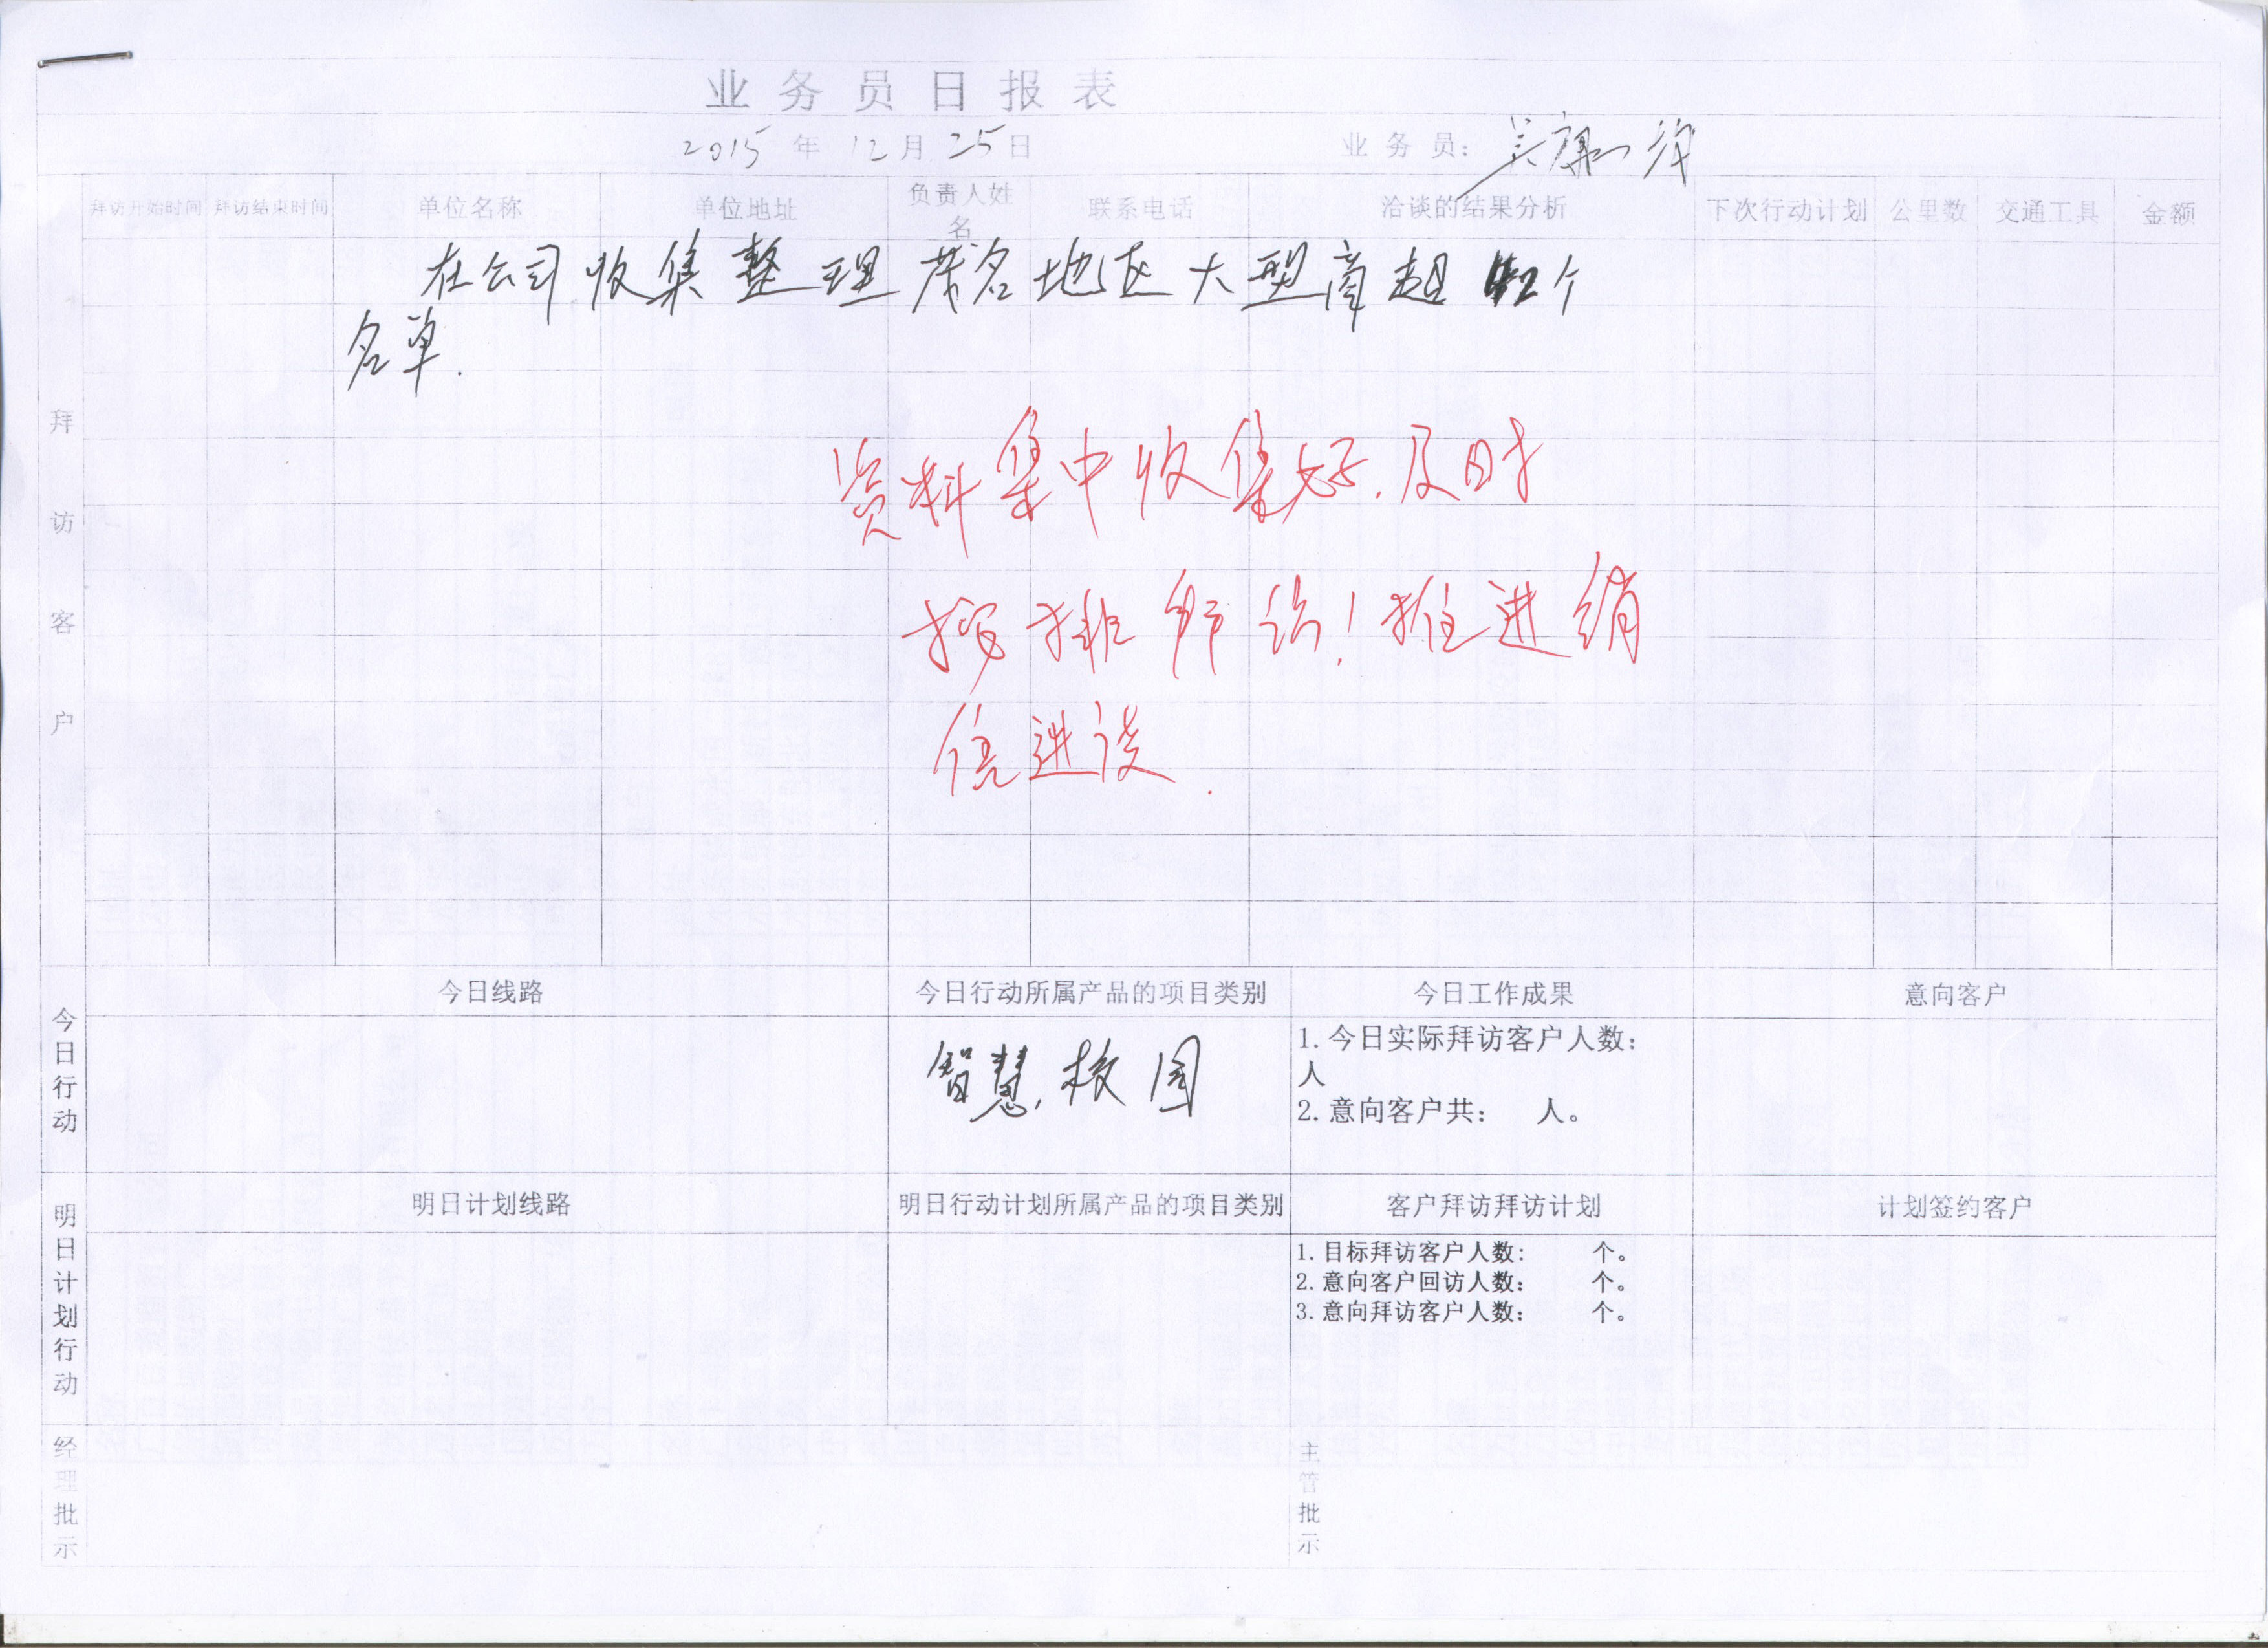 业务员日报表
2015年12月25日 业务员：吴
拜访开始时间 拜访结束时间 单位名称 单位地址 负责人姓名 联系电话 洽谈的结果分析 下次行动计划 公里数 交通工具 金额
拜访客户
在公司收集整理茂名地区大型商超 个
名单.
资料集中收集好.及时
按排拜访！推进销
进度.
今日行动
今日线路 今日行动所属产品的项目类别 今日工作成果 意向客户
智慧校园
1.今日实际拜访客户人数：
人
2.意向客户共： 人。
明日计划行动
明日计划线路 明日行动计划所属产品的项目类别 客户拜访拜访计划 计划签约客户
1.目标拜访客户人数： 个。
2.意向客户回访人数： 个。
3.意向拜访客户人数： 个。
经理批示 主管批示